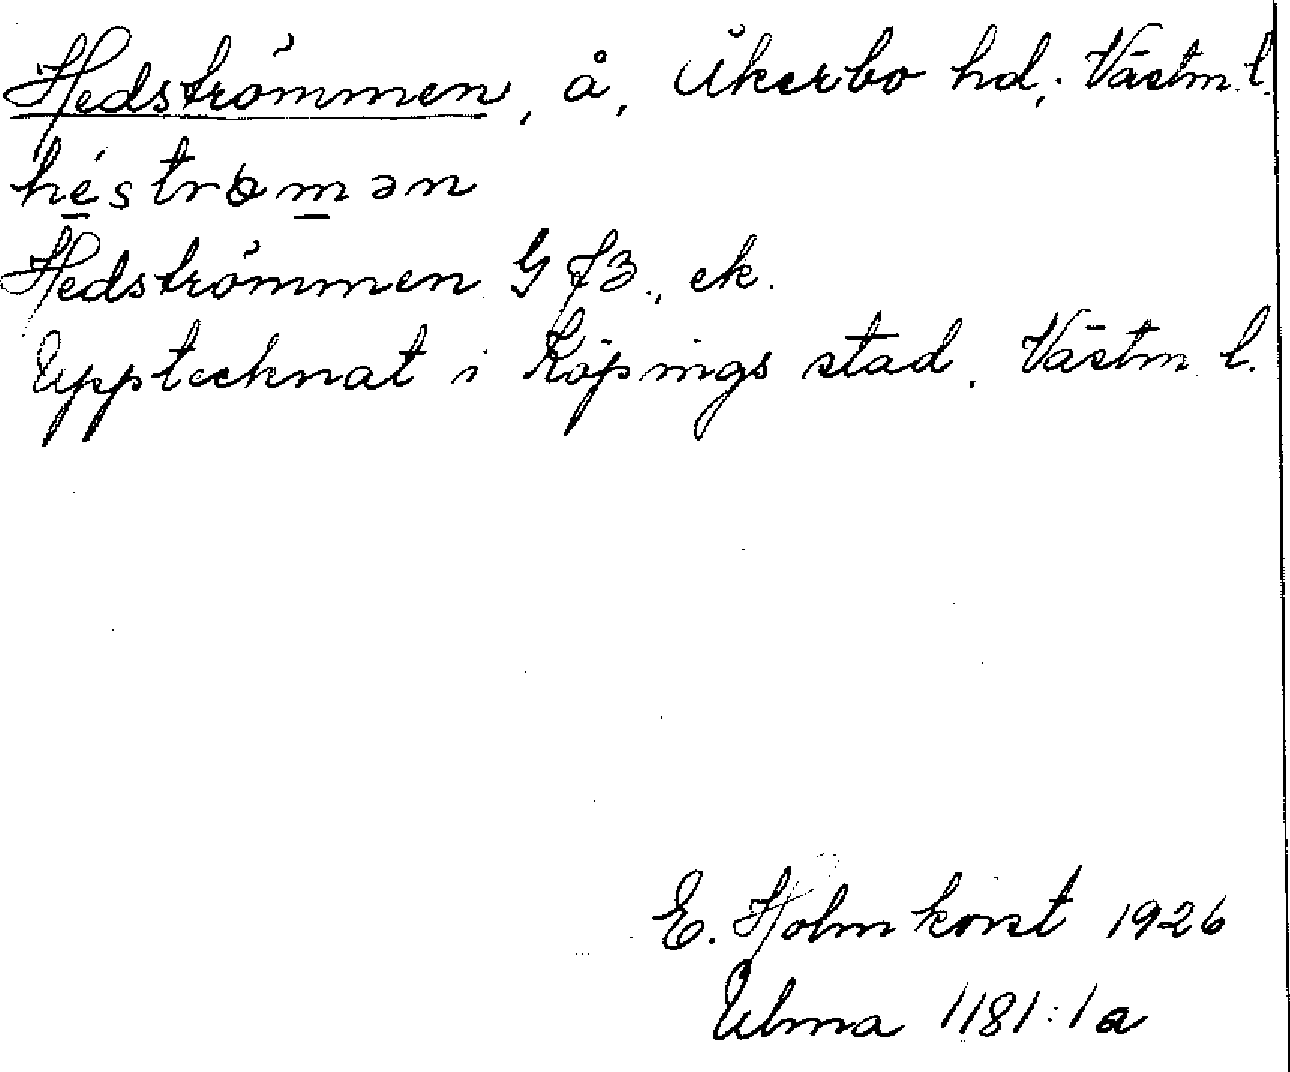 Hedströmmen, å, Åkerbo hd, Västm. l.
héströmən
Hedströmmen G f3., ek.
Upptecknat i Köpings stad. Västm. l.
E. Holmkvist 1926
Ulma 1181:1a